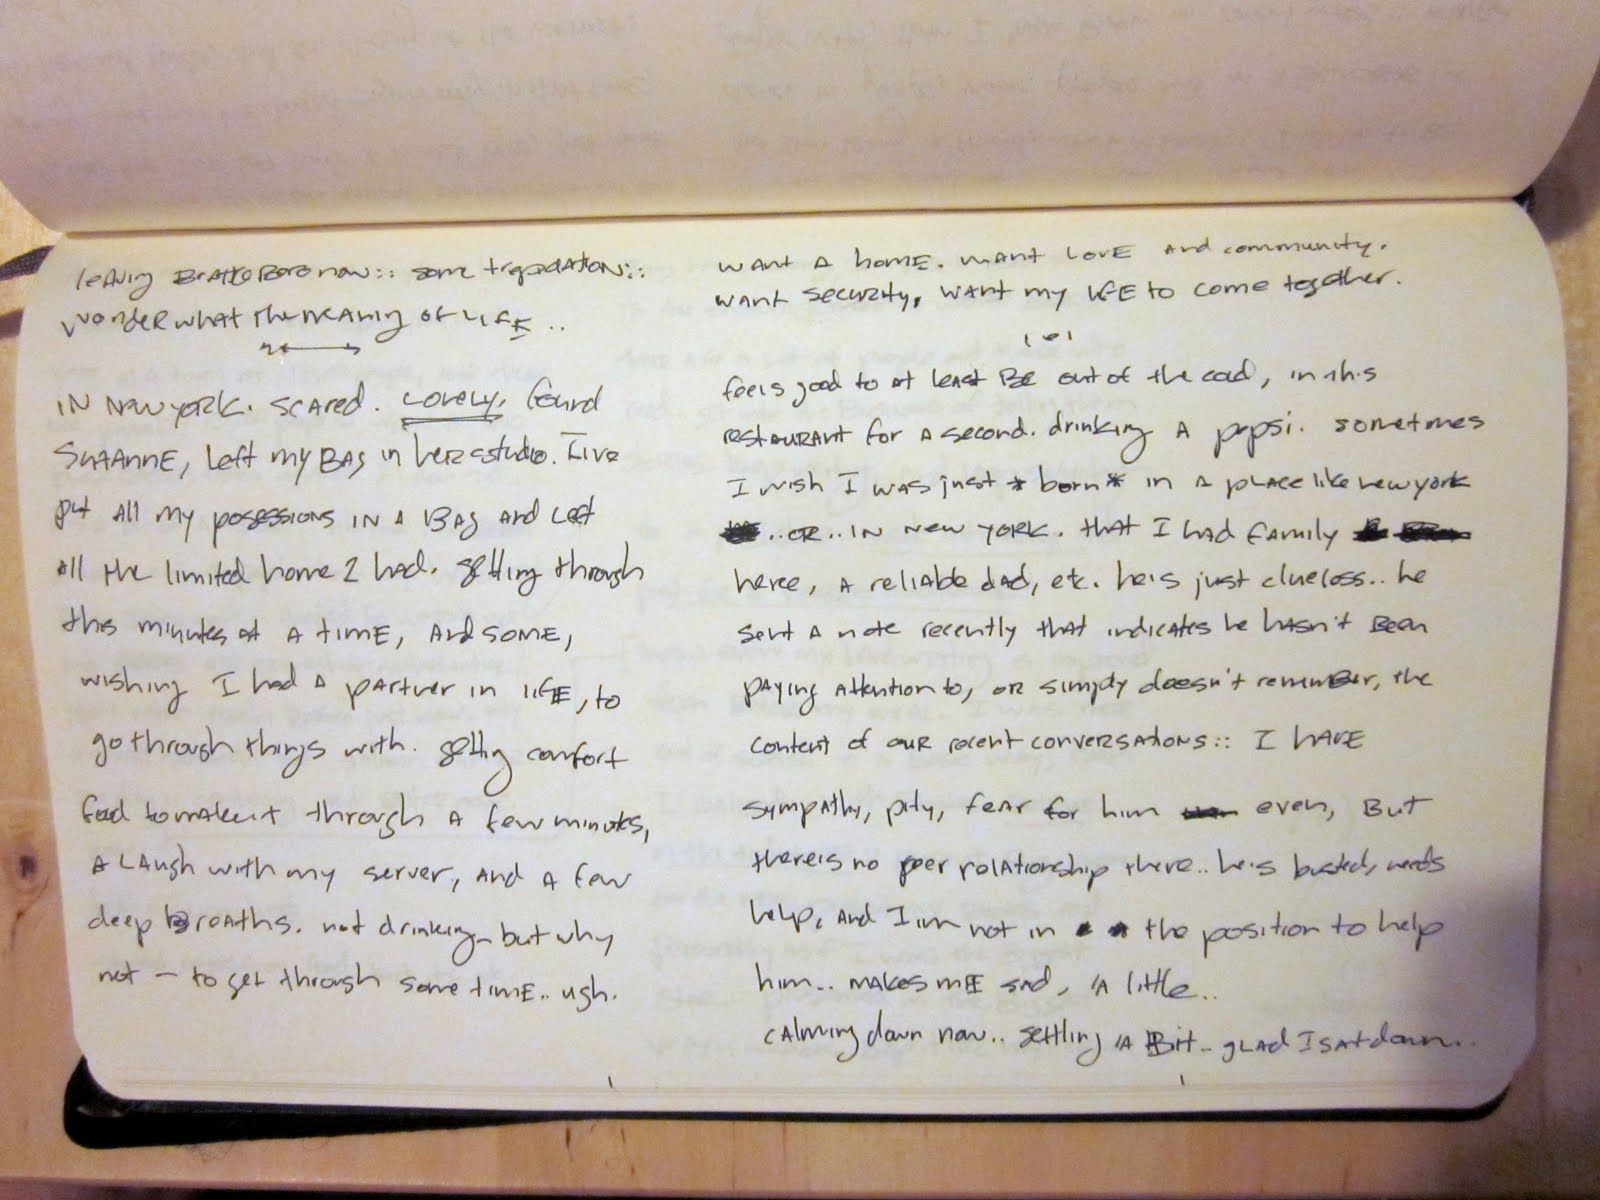 leaving Brattleboro now:: some trepidation::
wonder what the meaning of life..
IN New York. scared. Lonely. found
Suzanne, left my bag in her studio. I've
put all my posessions in a bag and left
all the limited home I had. getting through
this minutes at a time, and some,
wishing I had a partner in life, to
go through things with. getting comfort
food to make it through a few minutes,
a laugh with my server, and a few
deep breaths. not drinking - but why
not - to get through some time.. ugh.
want a home. want love and community.
want security, want my life to come together.
feels good to at least be out of the cold, in this
restaurant for a second. drinking a pepsi. sometimes
I wish I was just *born* in a place like new york
..or.. in new york. that I had family
here, a reliable dad, etc. he's just clueless.. he
sent a note recently that indicates he hasn't been
paying attention to, or simply doesn't remember, the
content of our recent conversations:: I have
sympathy, pity, fear for him even, but
there is no peer relationship there.. he's busted, needs
help, and I'm not in the position to help
him.. makes me sad, a little..
calming down now.. settling a bit - glad I sat down..